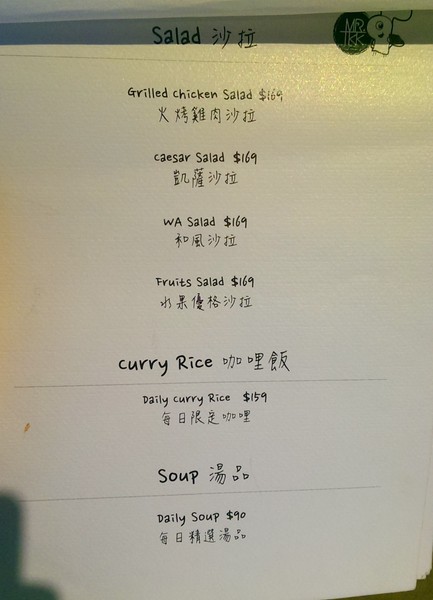 Salad 沙拉
MR
TKK
Grilled chicken Salad $169
火烤雞肉沙拉
caesar Salad $169
凱薩沙拉
WA Salad $169
和風沙拉
Fruits Salad $169
水果優格沙拉
curry Rice 咖哩飯
Daily curry Rice $159
每日限定咖哩
Soup 湯品
Daily Soup $90
每日精選湯品